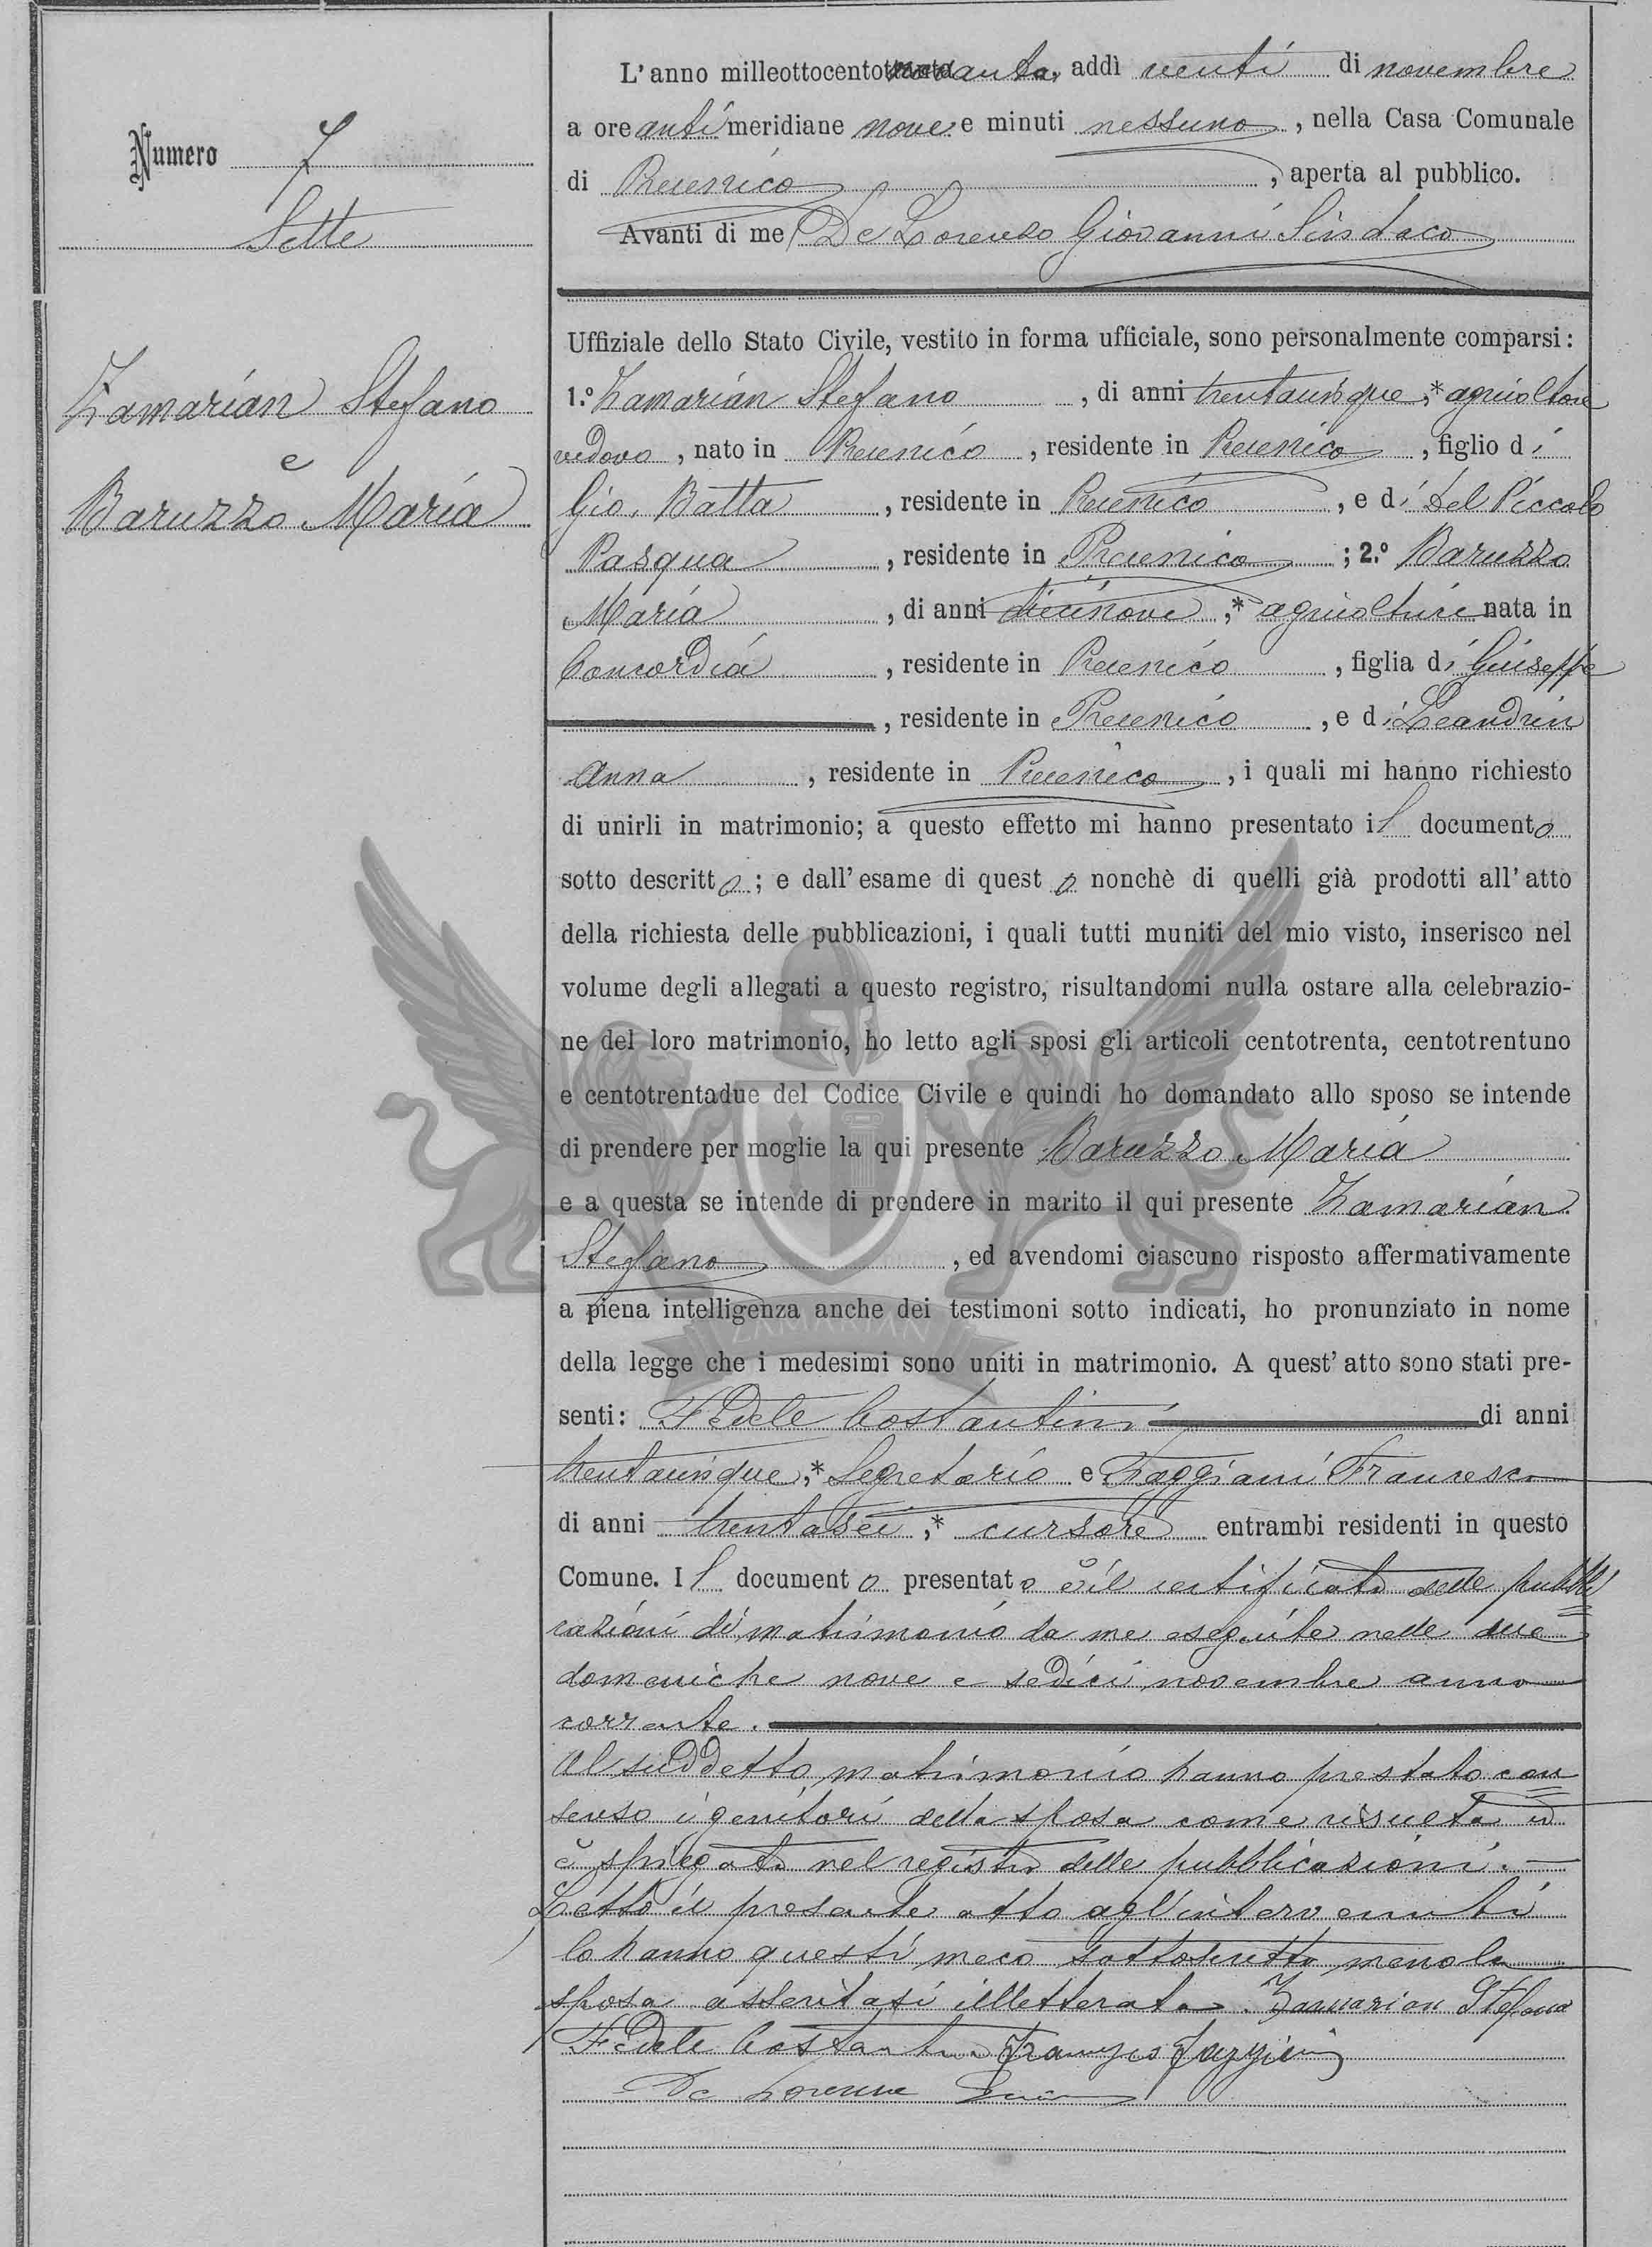 Numero 7
Sette
Zamarian Stefano
e
Baruzzo Maria
L'anno milleottocento novanta, addì venti di novembre
a ore antimeridiane nove e minuti nessuno, nella Casa Comunale
di Precenico, aperta al pubblico.
Avanti di me De Lorenzo Giovanni Sindaco
Uffiziale dello Stato Civile, vestito in forma ufficiale, sono personalmente comparsi:
1.° Zamarian Stefano, di anni trentacinque,* agricoltore
vedovo, nato in Precenico, residente in Precenico, figlio di
Gio. Batta, residente in Precenico, e di Del Piccolo
Pasqua, residente in Precenico; 2.° Baruzzo
Maria, di anni diecinove,* agricoltrice nata in
Concordia, residente in Precenico, figlia di Giuseppe
, residente in Precenico, e di Leandrin
Anna, residente in Precenico, i quali mi hanno richiesto
di unirli in matrimonio; a questo effetto mi hanno presentato il documento
sotto descritto; e dall'esame di questo nonchè di quelli già prodotti all'atto
della richiesta delle pubblicazioni, i quali tutti muniti del mio visto, inserisco nel
volume degli allegati a questo registro, risultandomi nulla ostare alla celebrazio-
ne del loro matrimonio, ho letto agli sposi gli articoli centotrenta, centotrentuno
e centotrentadue del Codice Civile e quindi ho domandato allo sposo se intende
di prendere per moglie la qui presente Baruzzo Maria
e a questa se intende di prendere in marito il qui presente Zamarian
Stefano, ed avendomi ciascuno risposto affermativamente
a piena intelligenza anche dei testimoni sotto indicati, ho pronunziato in nome
ZAMARIAN
della legge che i medesimi sono uniti in matrimonio. A quest'atto sono stati pre-
senti: Fedele Costantini di anni
trentacinque,* Segretario e Faggiani Francesco
di anni trentasei,* cursore entrambi residenti in questo
Comune. Il documento presentato è il certificato delle pubbli
cazioni di matrimonio da me eseguite nelle due
domeniche nove e sedici novembre anno
corrente.
Al suddetto matrimonio hanno prestato con
senso i genitori della sposa come risulta ed
è spiegato nel registro delle pubblicazioni.
Letto il presente atto agl'intervenuti
lo hanno questi meco sottoscritto meno la
sposa asseritasi illetterata. Zamarian Stefano
Fedele Costantini Francesco Faggiani
De Lorenzo